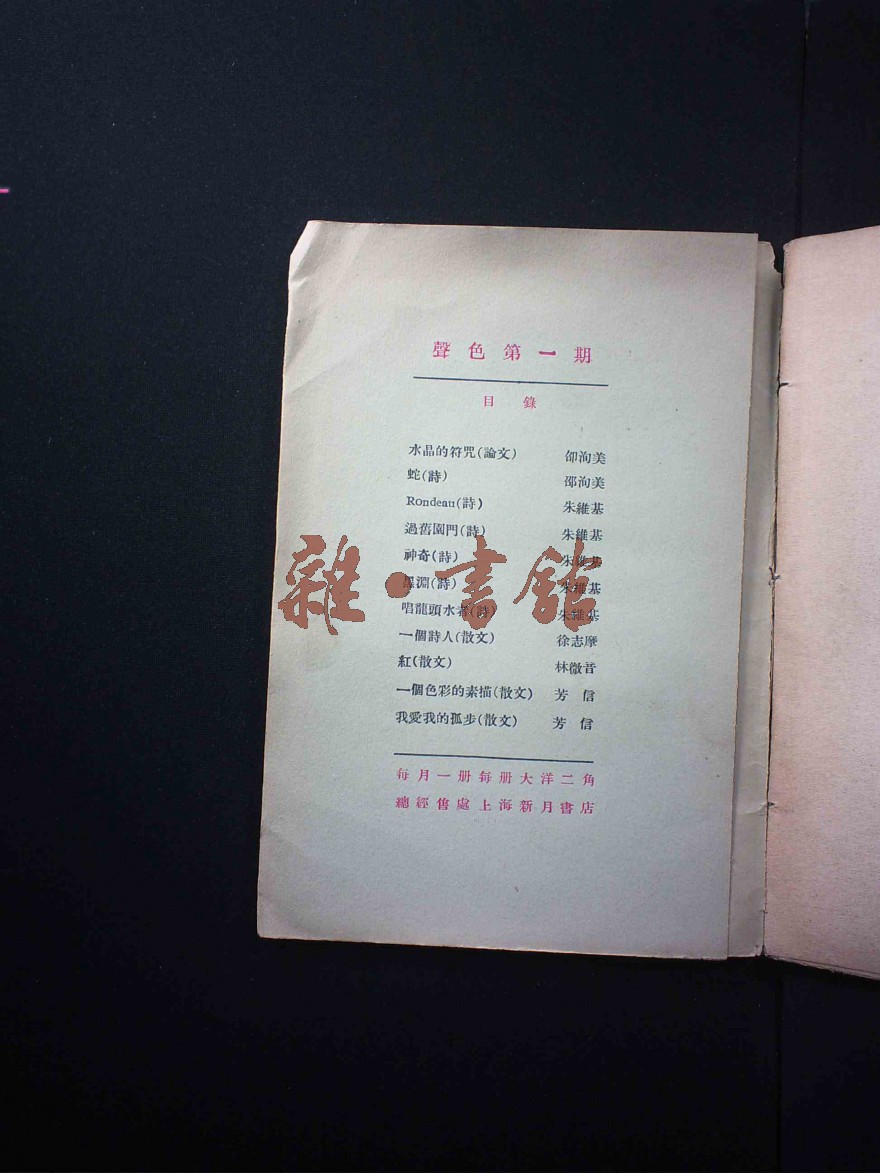 聲色第一期
目錄
水晶的符咒(論文) 邵洵美
蛇(詩) 邵洵美
Rondeau(詩) 朱維基
過舊園門(詩) 朱維基
神奇(詩) 朱維基
黑淵(詩) 朱維基
唱龍頭水者(詩) 朱維基
一個詩人(散文) 徐志摩
紅(散文) 林微音
一個色彩的素描(散文) 芳信
我愛我的孤步(散文) 芳信
每月一册每册大洋二角
總經售處上海新月書店
雜·書館